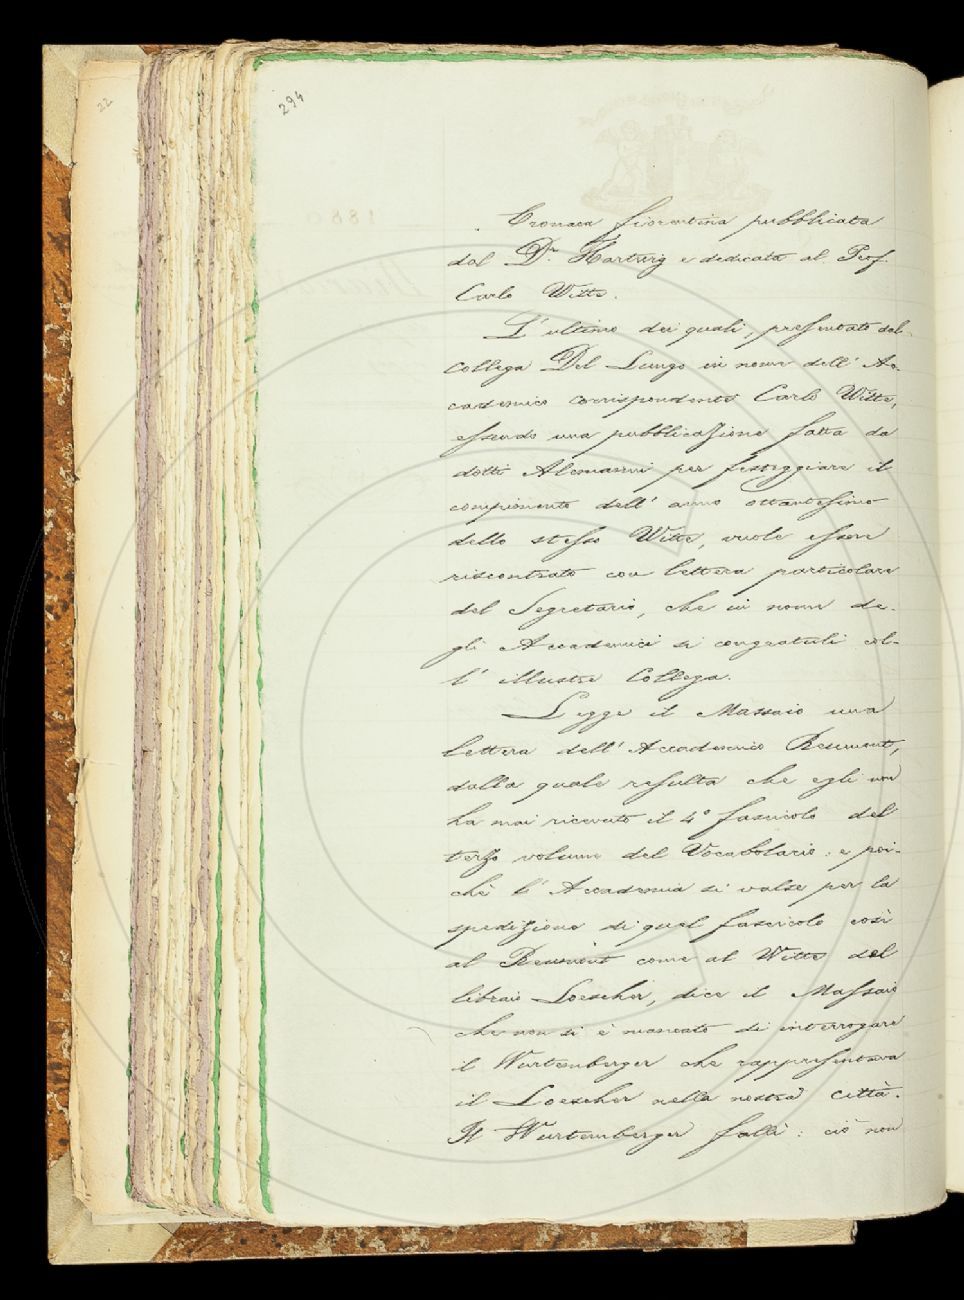 22
294
Cronaca fiorentina pubblicata
dal Dr. Hartwig e dedicata al Prof.
Carlo Witte.
L' ultimo dei quali, presentato dal
collega Del Lungo in nome dell' Ac-
cademico corrispondente Carlo Witte,
essendo una pubblicazione fatta da
dotti Alemanni per festeggiare il
compimento dell' anno ottantesimo
dello stesso Witte, vuole essere
riscontrato con lettera particolare
del Segretario, che in nome de-
gli Accademici si congratuli col-
l' illustre Collega.
Legge il Massaio una
lettera dell' Accademico Reumont,
dalla quale resulta che egli non
ha mai ricevuto il 4° fascicolo del
terzo volume del Vocabolario: e poi-
chè l' Accademia si valse per la
spedizione di quel fascicolo così
al Reumont come al Witte del
libraio Loescher, dice il Massaio
che non si è mancato di interrogare
il Wurtemberger che rappresentava
il Loescher nella nostra città.
Il Wurtemberger fallì: ciò non